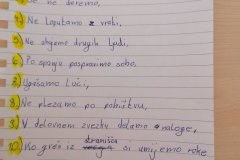 se ne deremo,
4.) Ne loputamo z vrati,
5.) Ne zbijemo drugih ljudi,
6.) Po spanju pospravimo sobo,
7.) Ugašamo luči,
8.) Ne plezamo po pohištvu,
9.) V delovnem zvezku delamo naloge,
10.) Ko greš iz stranišča si umijemo roke